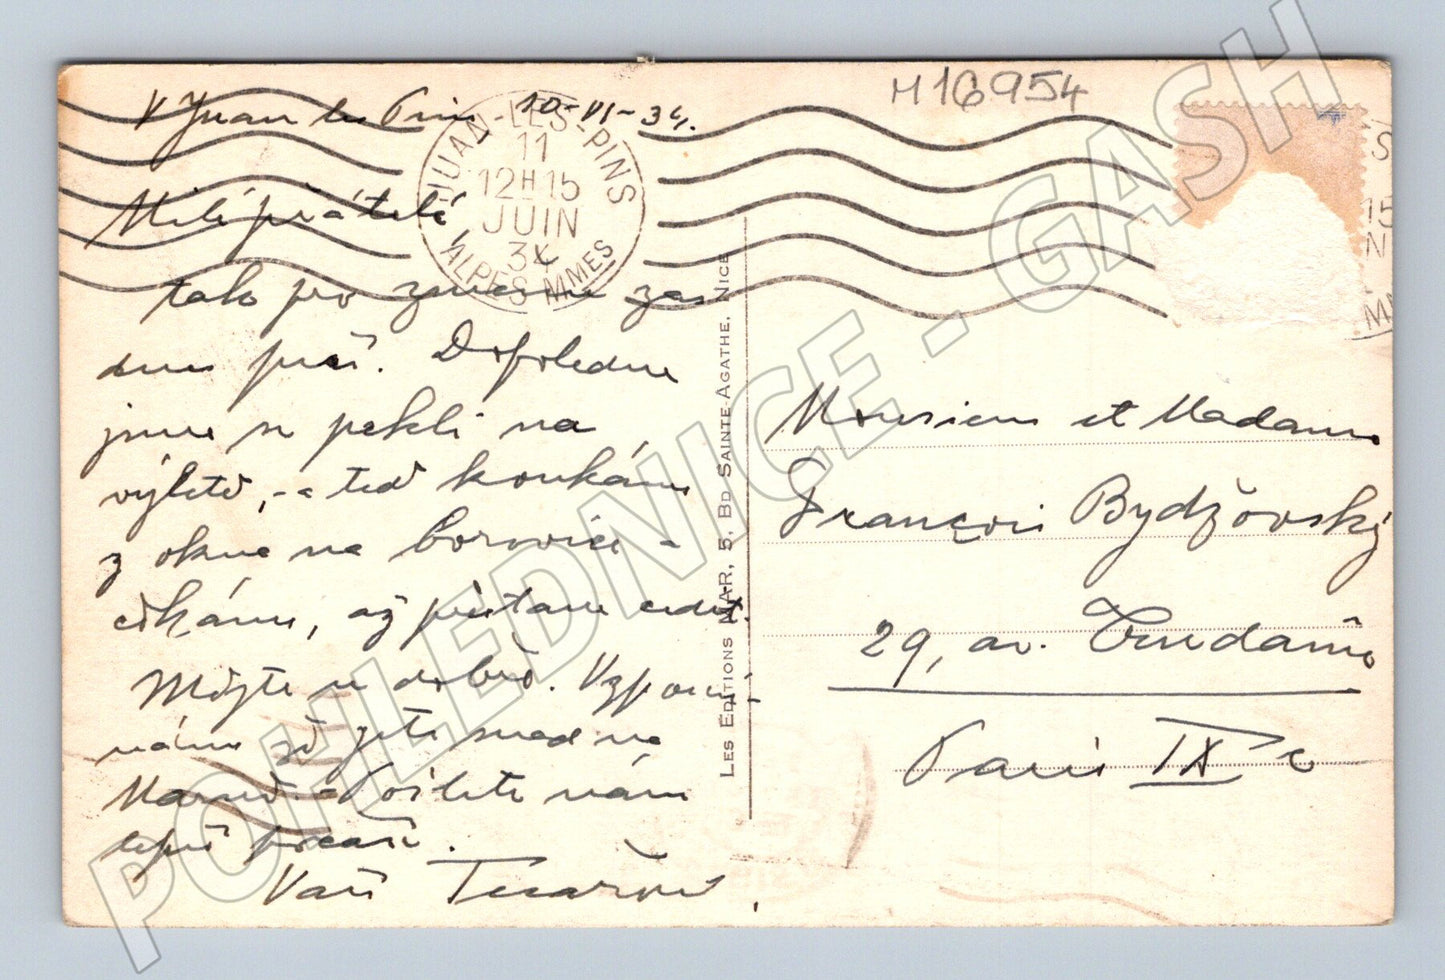 M16954
V Juan les Pins 10-VI-34.
JUAN-LES-PINS
11
12H15
JUIN
34
ALPES MMES
Milí přátelé
tak pro změnu zas
dnes prší. Dopoledne
jsme se pekli na
výletě, - a teď koukáme
z okna na borovice a
čekáme, až přestane
Mějte se dobře. Vzpomí-
náme že jste snad na
Pošlete nám
lepší počasí.
Vaši
LES EDITIONS MAR, 5, BD SAINTE-AGATHE, NICE
Monsieur et Madame
François Bydžovský
29, av. Trudaine
Paris IXe
POHLEDNICE - GASH